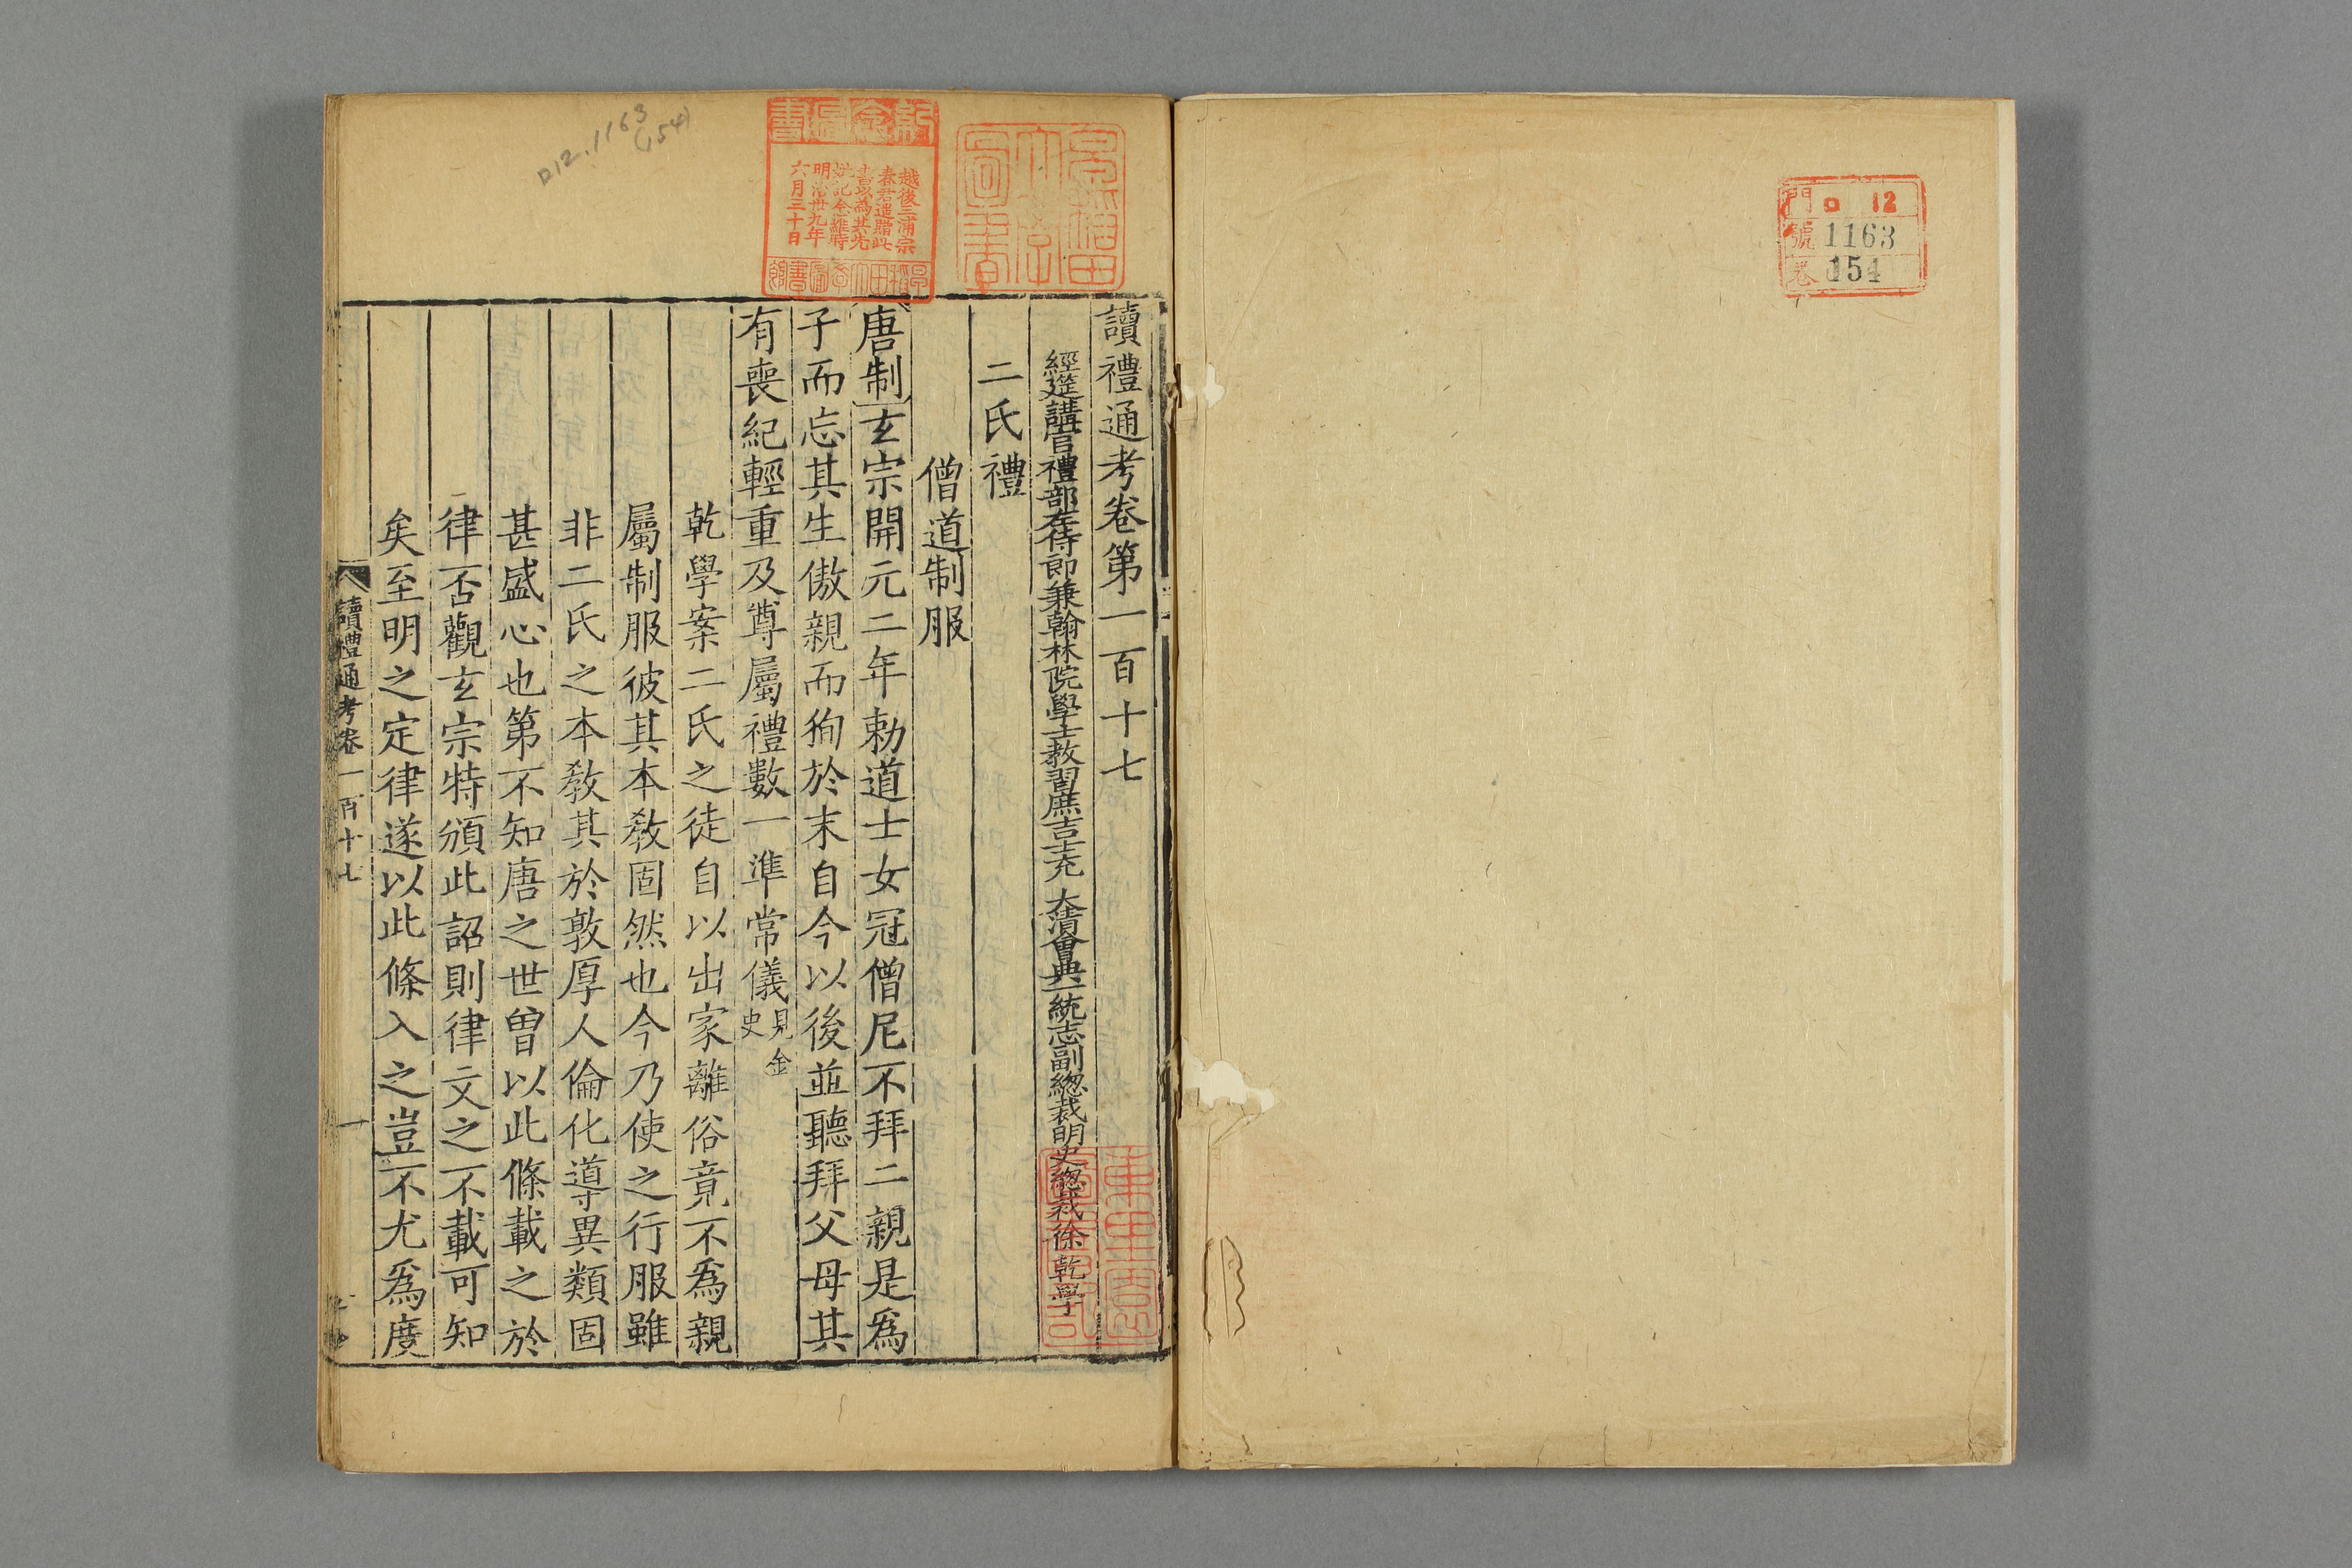 門 ロ 12
號 1163
卷 154
ロ12.1163
(154)
越後三浦宗
春君遺贈此
書以為其先
妣記念維時
明治卅九年
六月三十日
早稲田大学図書館
早稲田大学図書
讀禮通考卷第一百十七
經筵講官禮部左侍郎兼翰林院學士教習庶吉士充 大清會典一統志副總裁明史總裁徐乾學
二氏禮
僧道制服
唐制玄宗開元二年勅道士女冠僧尼不拜二親是爲
子而忘其生傲親而狥於末自今以後並聽拜父母其
有喪紀輕重及尊屬禮數一準常儀見金史
乾學案二氏之徒自以出家離俗竟不爲親
屬制服彼其本敎固然也今乃使之行服雖
非二氏之本敎其於敦厚人倫化導異類固
甚盛心也第不知唐之世曾以此條載之於
律否觀玄宗特頒此詔則律文之不載可知
矣至明之定律遂以此條入之豈不尤爲度
讀禮通考卷一百十七 一